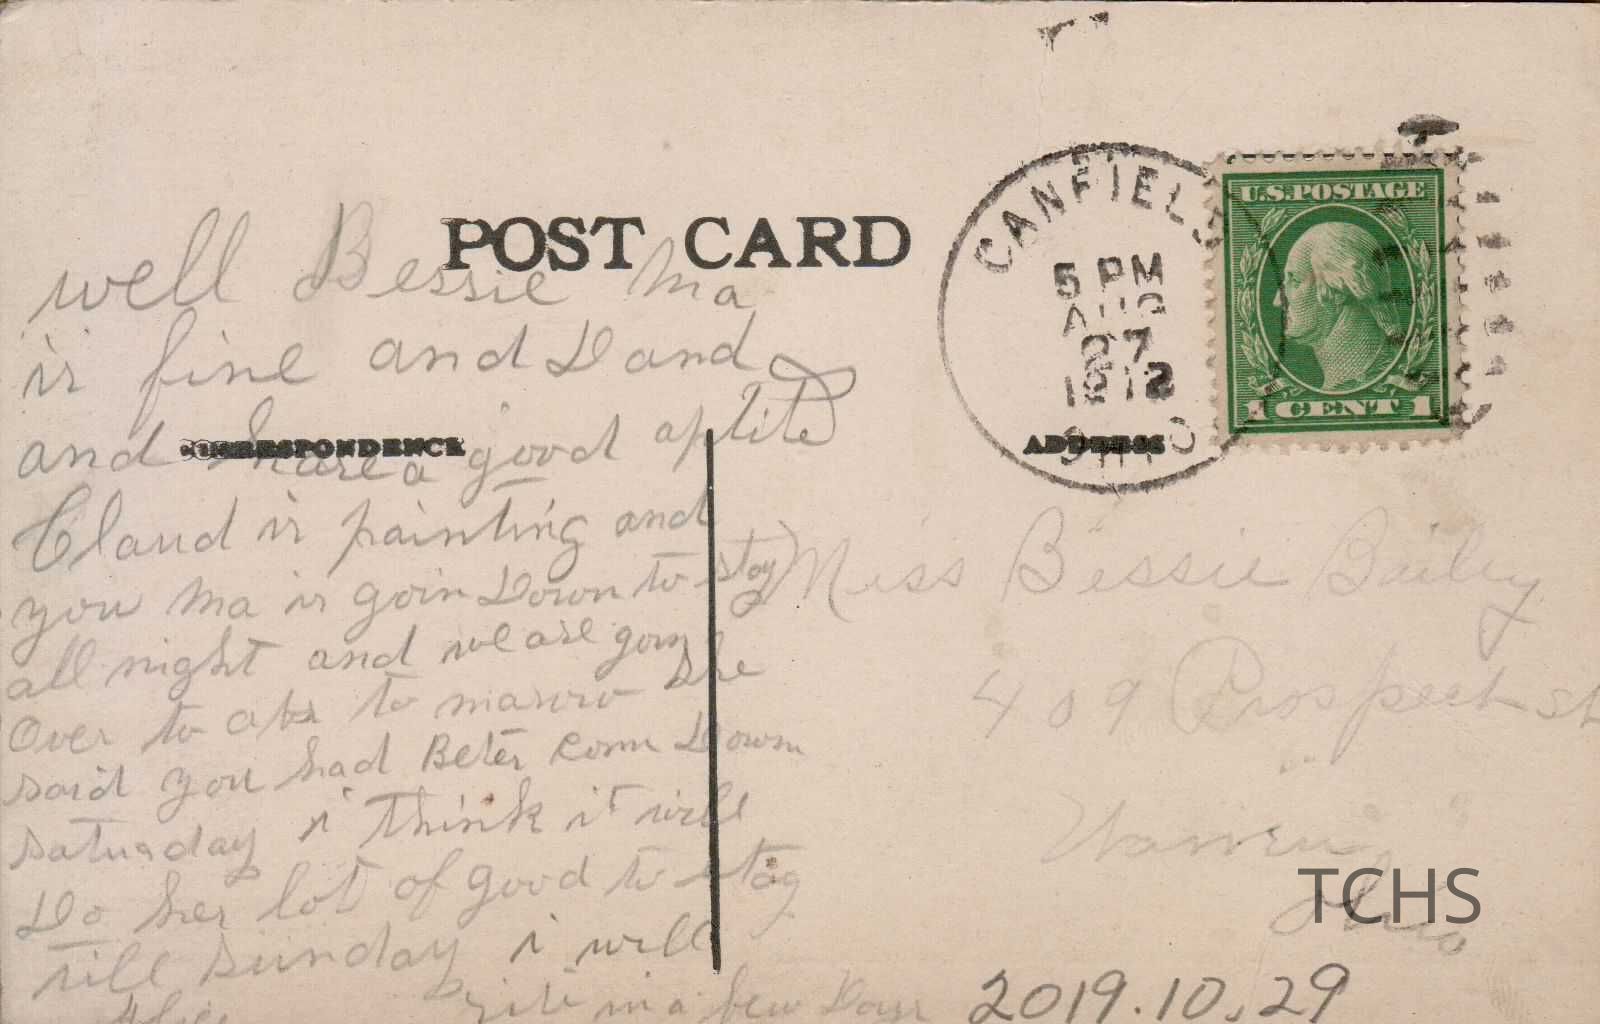 POST CARD
CANFIELD
5 PM
AUG
27
1912
OHIO
U.S. POSTAGE
1 CENT 1
CORRESPONDENCE
ADDRESS
well Bessie Ma
is fine and Dand
and have a good aptite
Claud is painting and
you Ma is goin Down to stay
all night and we are goin
Over to to marrow She
said you had Beter Come Down
saturday i think it will
Do her lot of good to stay
till sunday i will
rite in a few Days
Alice
Miss Bessie Bailey
409 Prospect st
Warren
Ohio
TCHS
2019.10.29